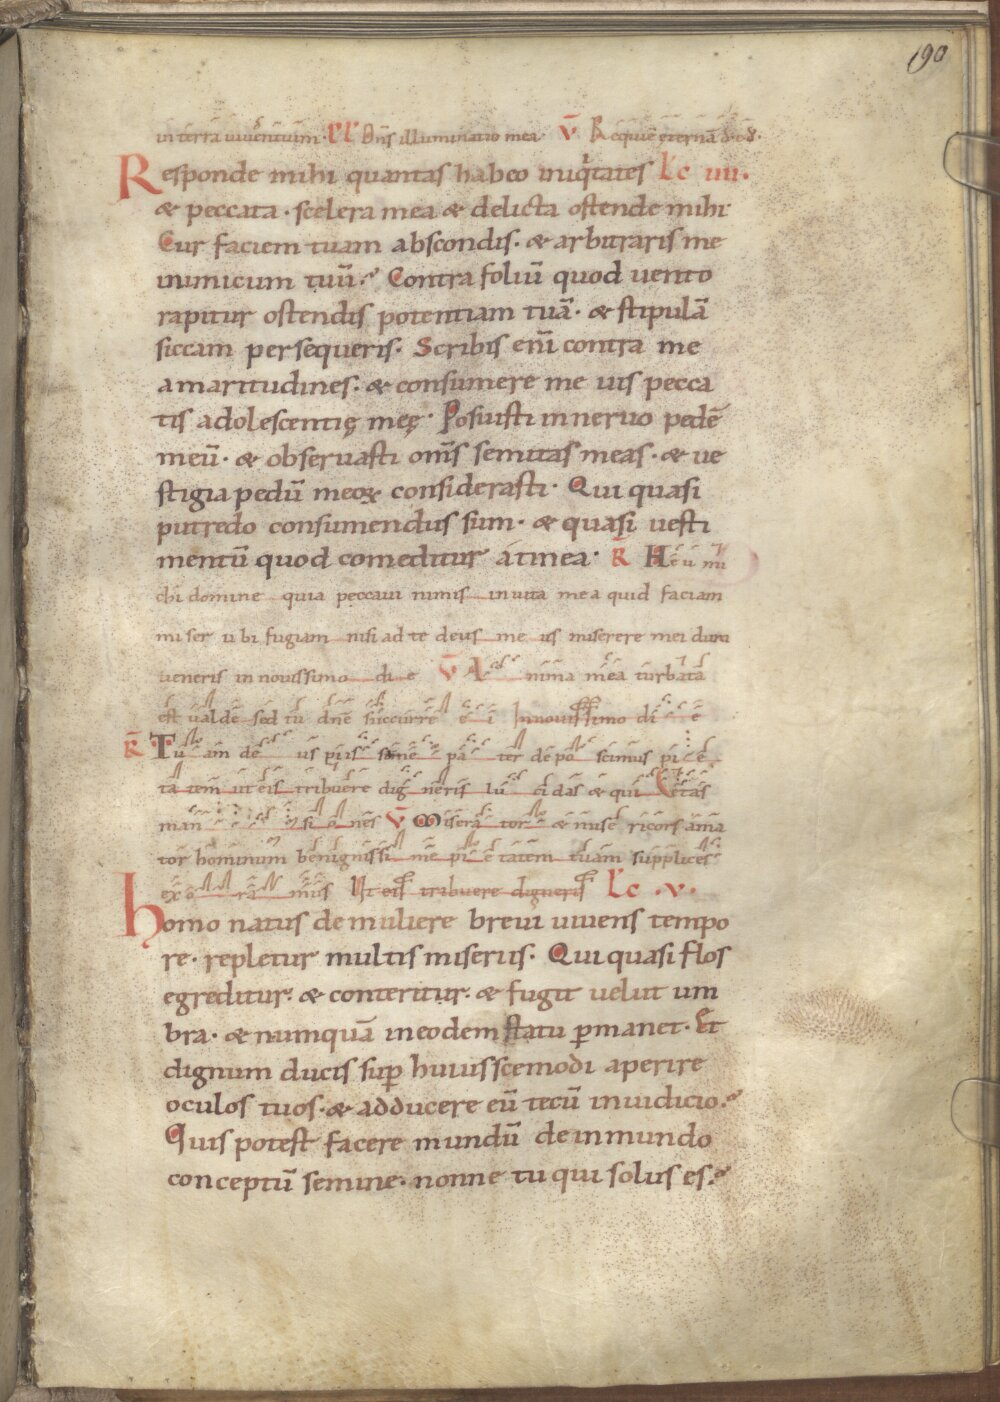 190
in terra uiuentium. Ps Dn̄s illuminatio mea V̄ Requiē eternā d. e. d.
Responde mihi quantas habeo iniq̇tates Lc iiii.
& peccata. scelera mea & delicta ostende mihi
Cur faciem tuam abscondis. & arbitraris me
inimicum tuū. Contra foliū quod uento
rapitur ostendis potentiam tuā. & stipulā
siccam persequeris. Scribis enī contra me
amaritudines. & consumere me uis pecca
tis adolescentię meę. Posuisti in neruo pedē
meū. & obseruasti om̄s semitas meas. & ue
stigia pedū meoꝝ considerasti. Qui quasi
putredo consumendus sum. & quasi uesti
mentū quod comeditur a tinea. R̄ Heu mi
chi domine quia peccaui nimis in uita mea quid faciam
miser ubi fugiam nisi ad te deus meus miserere mei dum
ueneris in nouissimo die V̄ Anima mea turbata
est ualde sed tu dn̄e succurre ei In nouissimo die
R̄ Tuam deus piissime pater deposcimus pie
tatem ut eis tribuere digneris lucidas & qui&as
mansiones V̄ Miserator & misericors ama
tor hominum benignissime pietatem tuam supplices
exoramus Ut eis tribuere digneris Lc .v.
Homo natus de muliere breui uiuens tempo
re. repletur multis miseriis. Qui quasi flos
egreditur. & conteritur. & fugit uelut um
bra. & numquā in eodem statu ꝑmanet. Et
dignum ducis suꝑ huiusscemodi aperire
oculos tuos. & adducere eū tecū in iudicio.
Quis potest facere mundū de inmundo
conceptū semine. nonne tu qui solus es.